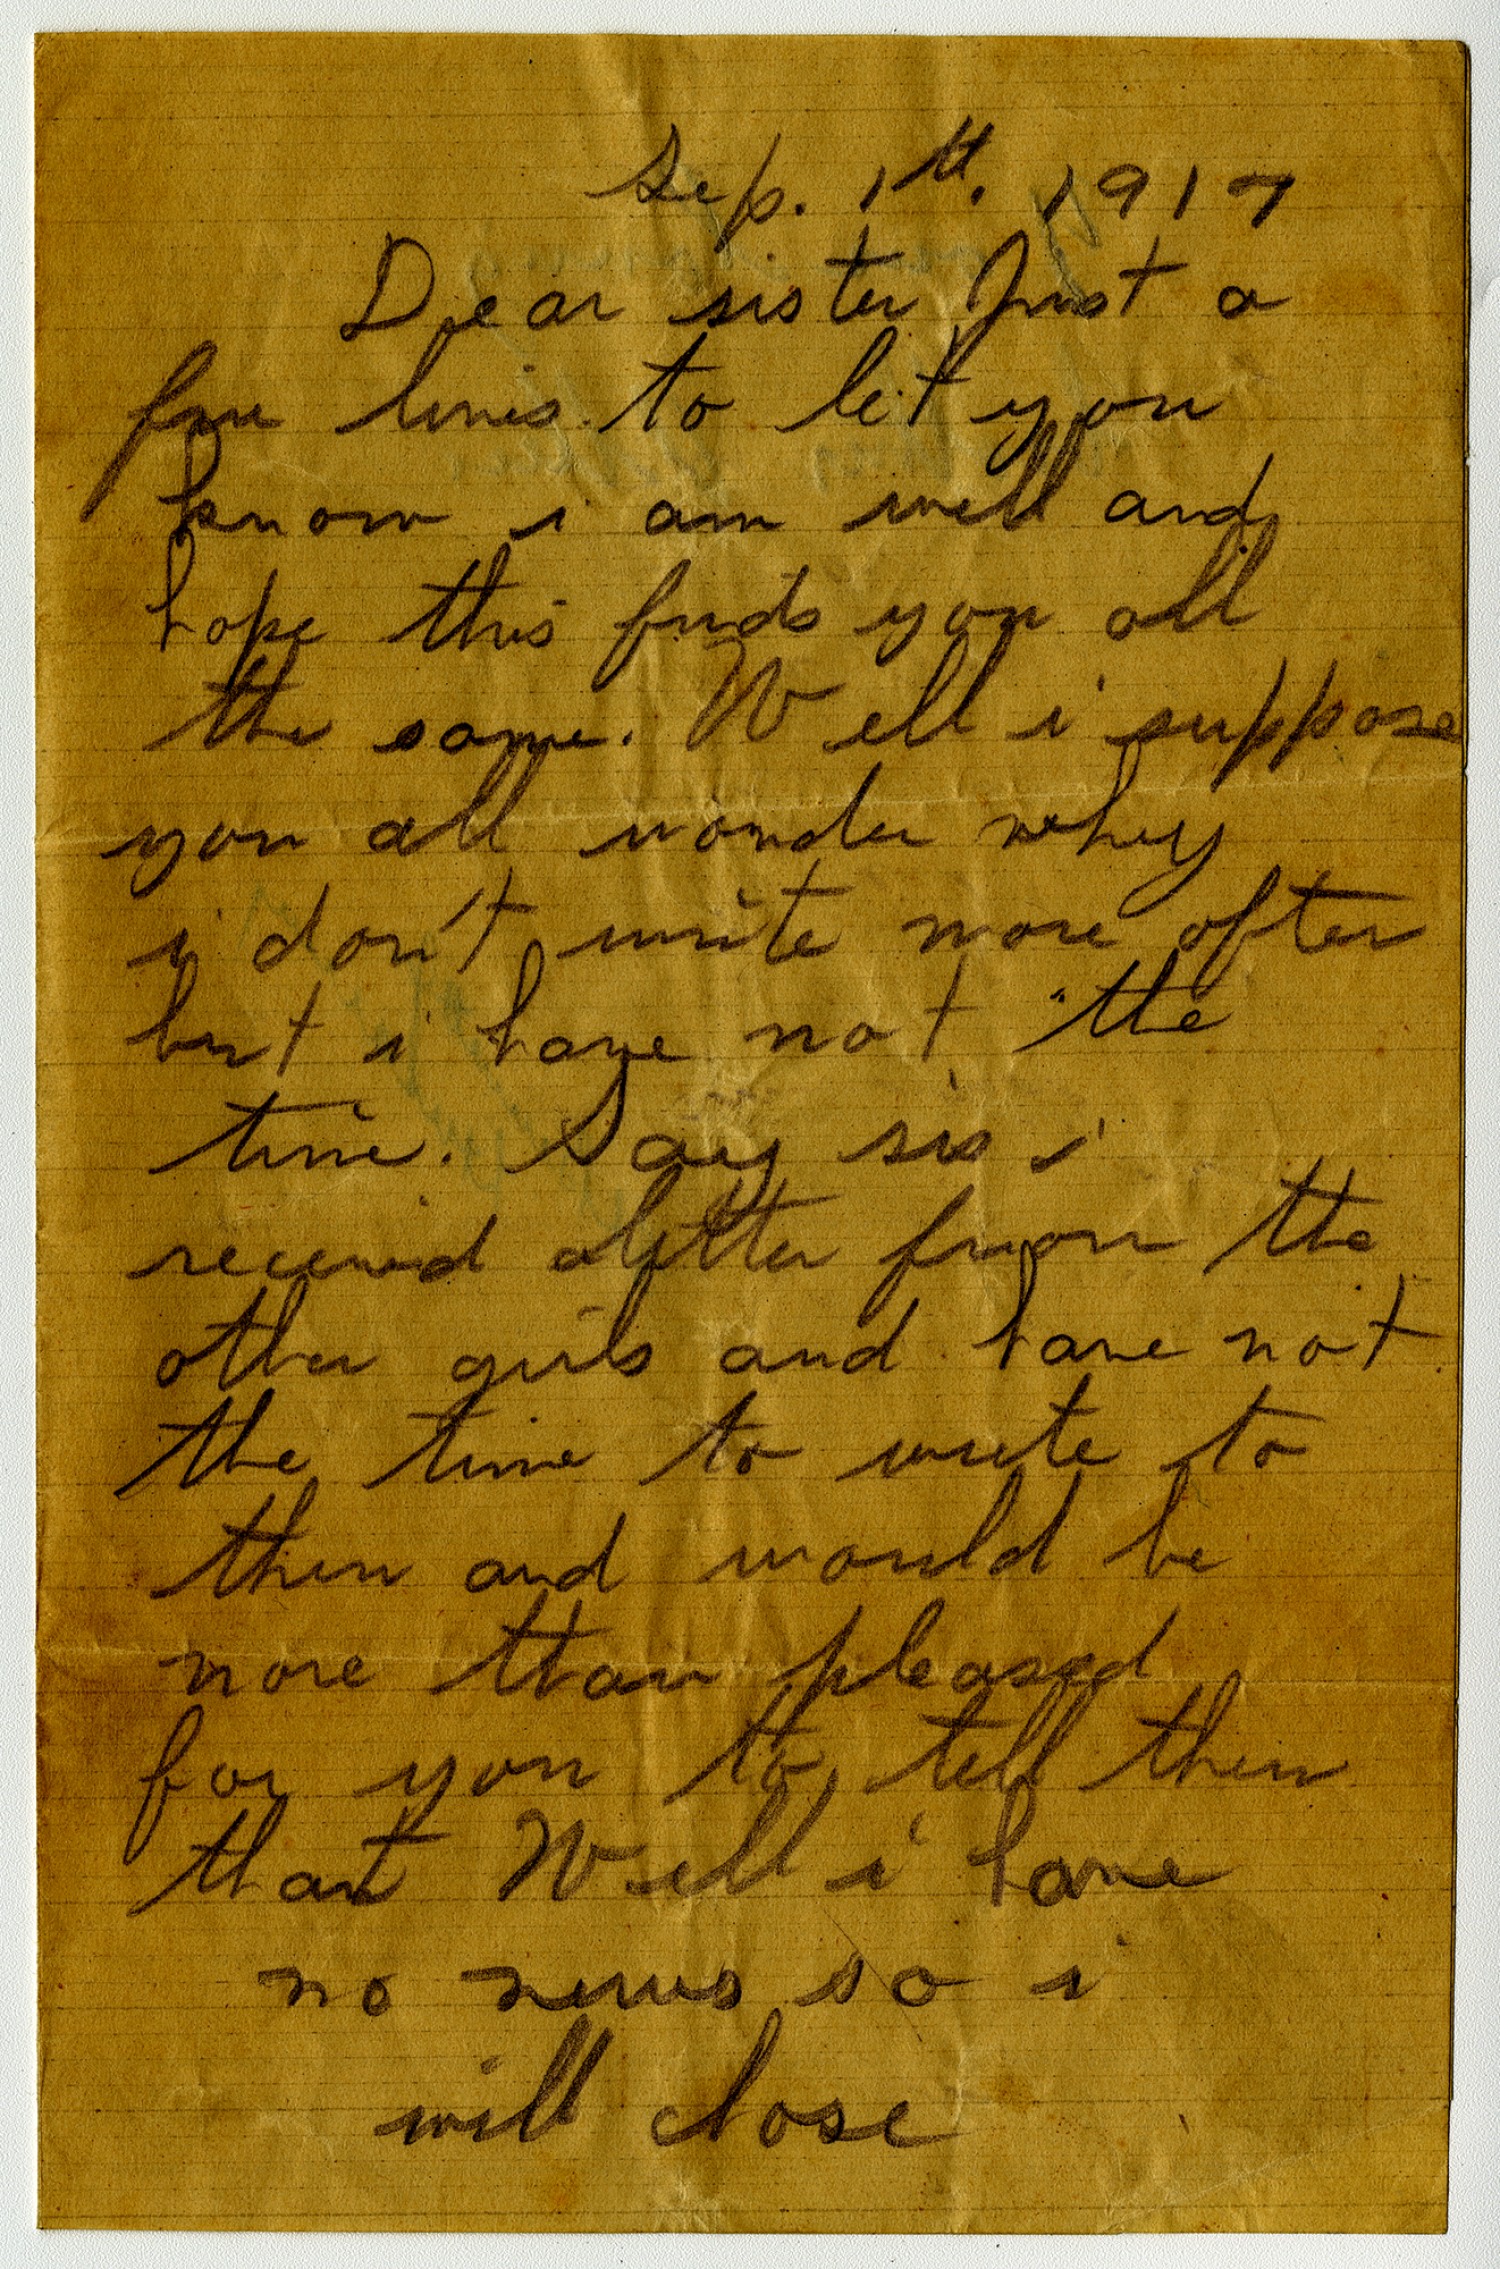 Sep. 1th. 1917
Dear sister Just a
few lines to let you
know i am well and
hope this finds you all
the same. Well i suppose
you all wonder whey
i don't write more often
but i have not the
time. Say sis i
received aletter from the
other girls and have not
the time to write to
them and would be
more than pleased
for you to tell them
that Well i have
no news so i
will close